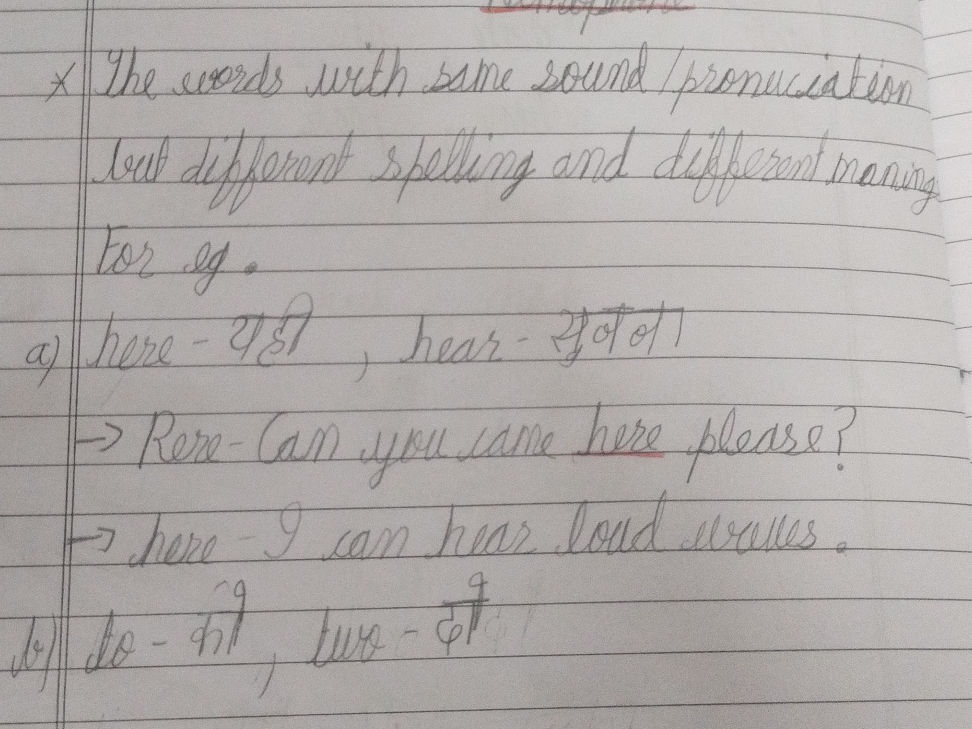 Homophone
* The words with same sound/pronuciation
but different spelling and different maning
For eg.
a) here - यही, hear - सुनना
→ Rere - Can you came here please?
→ here - I can hear loud waves.
b) to - को, two - दो